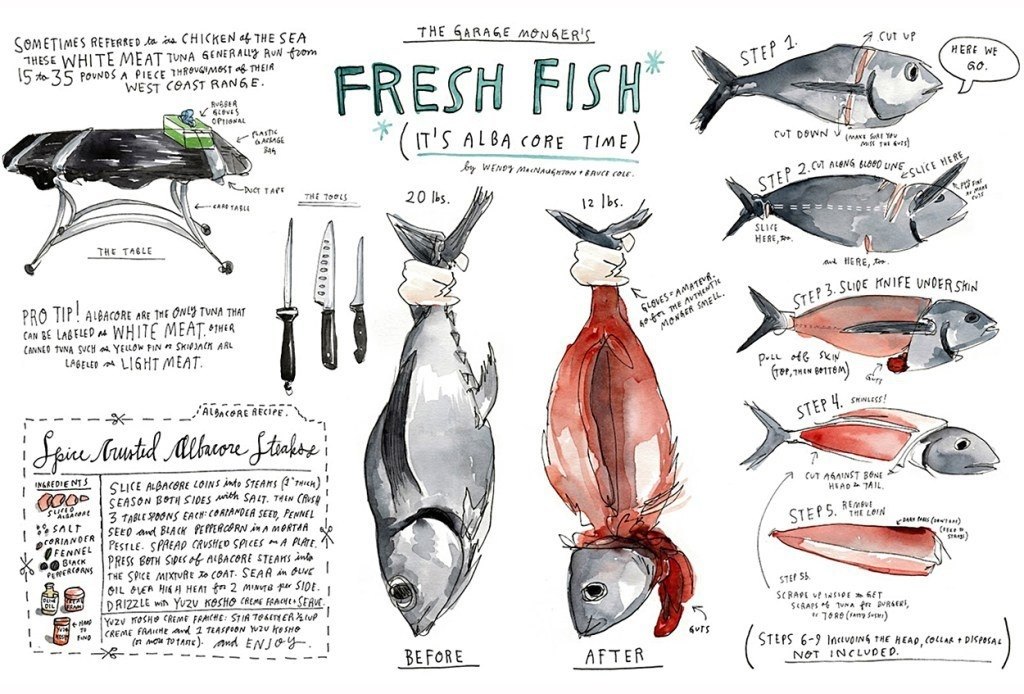 THE GARAGE MONGER'S
FRESH FISH
(IT'S ALBACORE TIME)
by WENDY MACNAUGHTON + BRUCE COLE.
SOMETIMES REFERRED to as CHICKEN of the SEA
THESE WHITE MEAT TUNA GENERALLY RUN from
15 to 35 POUNDS A PIECE THROUGHOUT MOST of THEIR
WEST COAST RANGE.
RUBBER
GLOVES
OPTIONAL
PLASTIC
GARBAGE
BAG
DUCT TAPE
CARD TABLE
THE TABLE
THE TOOLS
PRO TIP! ALBACORE ARE THE ONLY TUNA THAT
CAN BE LABELED as WHITE MEAT. OTHER
CANNED TUNA SUCH as YELLOW FIN or SKIPJACK ARE
LABELED as LIGHT MEAT.
ALBACORE RECIPE.
Spice Crusted Albacore Steaks
INGREDIENTS
SLICED
ALBACORE
SALT
CORIANDER
FENNEL
BLACK
PEPPERCORNS
OLIVE
OIL
HARD
to
FIND
SLICE ALBACORE LOINS into STEAKS (1" THICK)
SEASON BOTH SIDES with SALT. THEN CRUSH
3 TABLESPOONS EACH: CORIANDER SEED, FENNEL
SEED and BLACK PEPPERCORN in a MORTAR
PESTLE. SPREAD CRUSHED SPICES on a PLATE.
PRESS BOTH SIDES of ALBACORE STEAKS into
THE SPICE MIXTURE to COAT. SEAR in OLIVE
OIL OVER HIGH HEAT for 2 MINUTES per SIDE.
DRIZZLE with YUZU KOSHO CREME FRAICHE + SERVE.
YUZU KOSHO CREME FRAICHE: STIR TOGETHER 1/2 CUP
CREME FRAICHE and 1 TEASPOON YUZU KOSHO
(or more to TASTE). and ENJOY.
20 lbs.
BEFORE
12 lbs.
GLOVES = AMATEUR.
GO for THE AUTHENTIC
MONGER SMELL.
GUTS
AFTER
STEP 1.
CUT UP
HERE WE
GO.
CUT DOWN
(MAKE SURE YOU
MISS THE GUTS)
STEP 2. CUT ALONG BLOODLINE
SLICE HERE
SLICE
HERE, too.
and HERE, too.
STEP 3. SLIDE KNIFE UNDER SKIN
PULL OFF SKIN
(TOP, THEN BOTTOM)
GUTS
STEP 4. SKINLESS!
CUT AGAINST BONE
HEAD to TAIL.
STEP 5. REMOVE
THE LOIN
STEP 5b.
SCRAPE UP INSIDE to GET
SCRAPS of TUNA for BURGERS,
or TORO (FATTY SUSHI)
(STEPS 6-9 INCLUDING THE HEAD, COLLAR + DISPOSAL
NOT INCLUDED.)